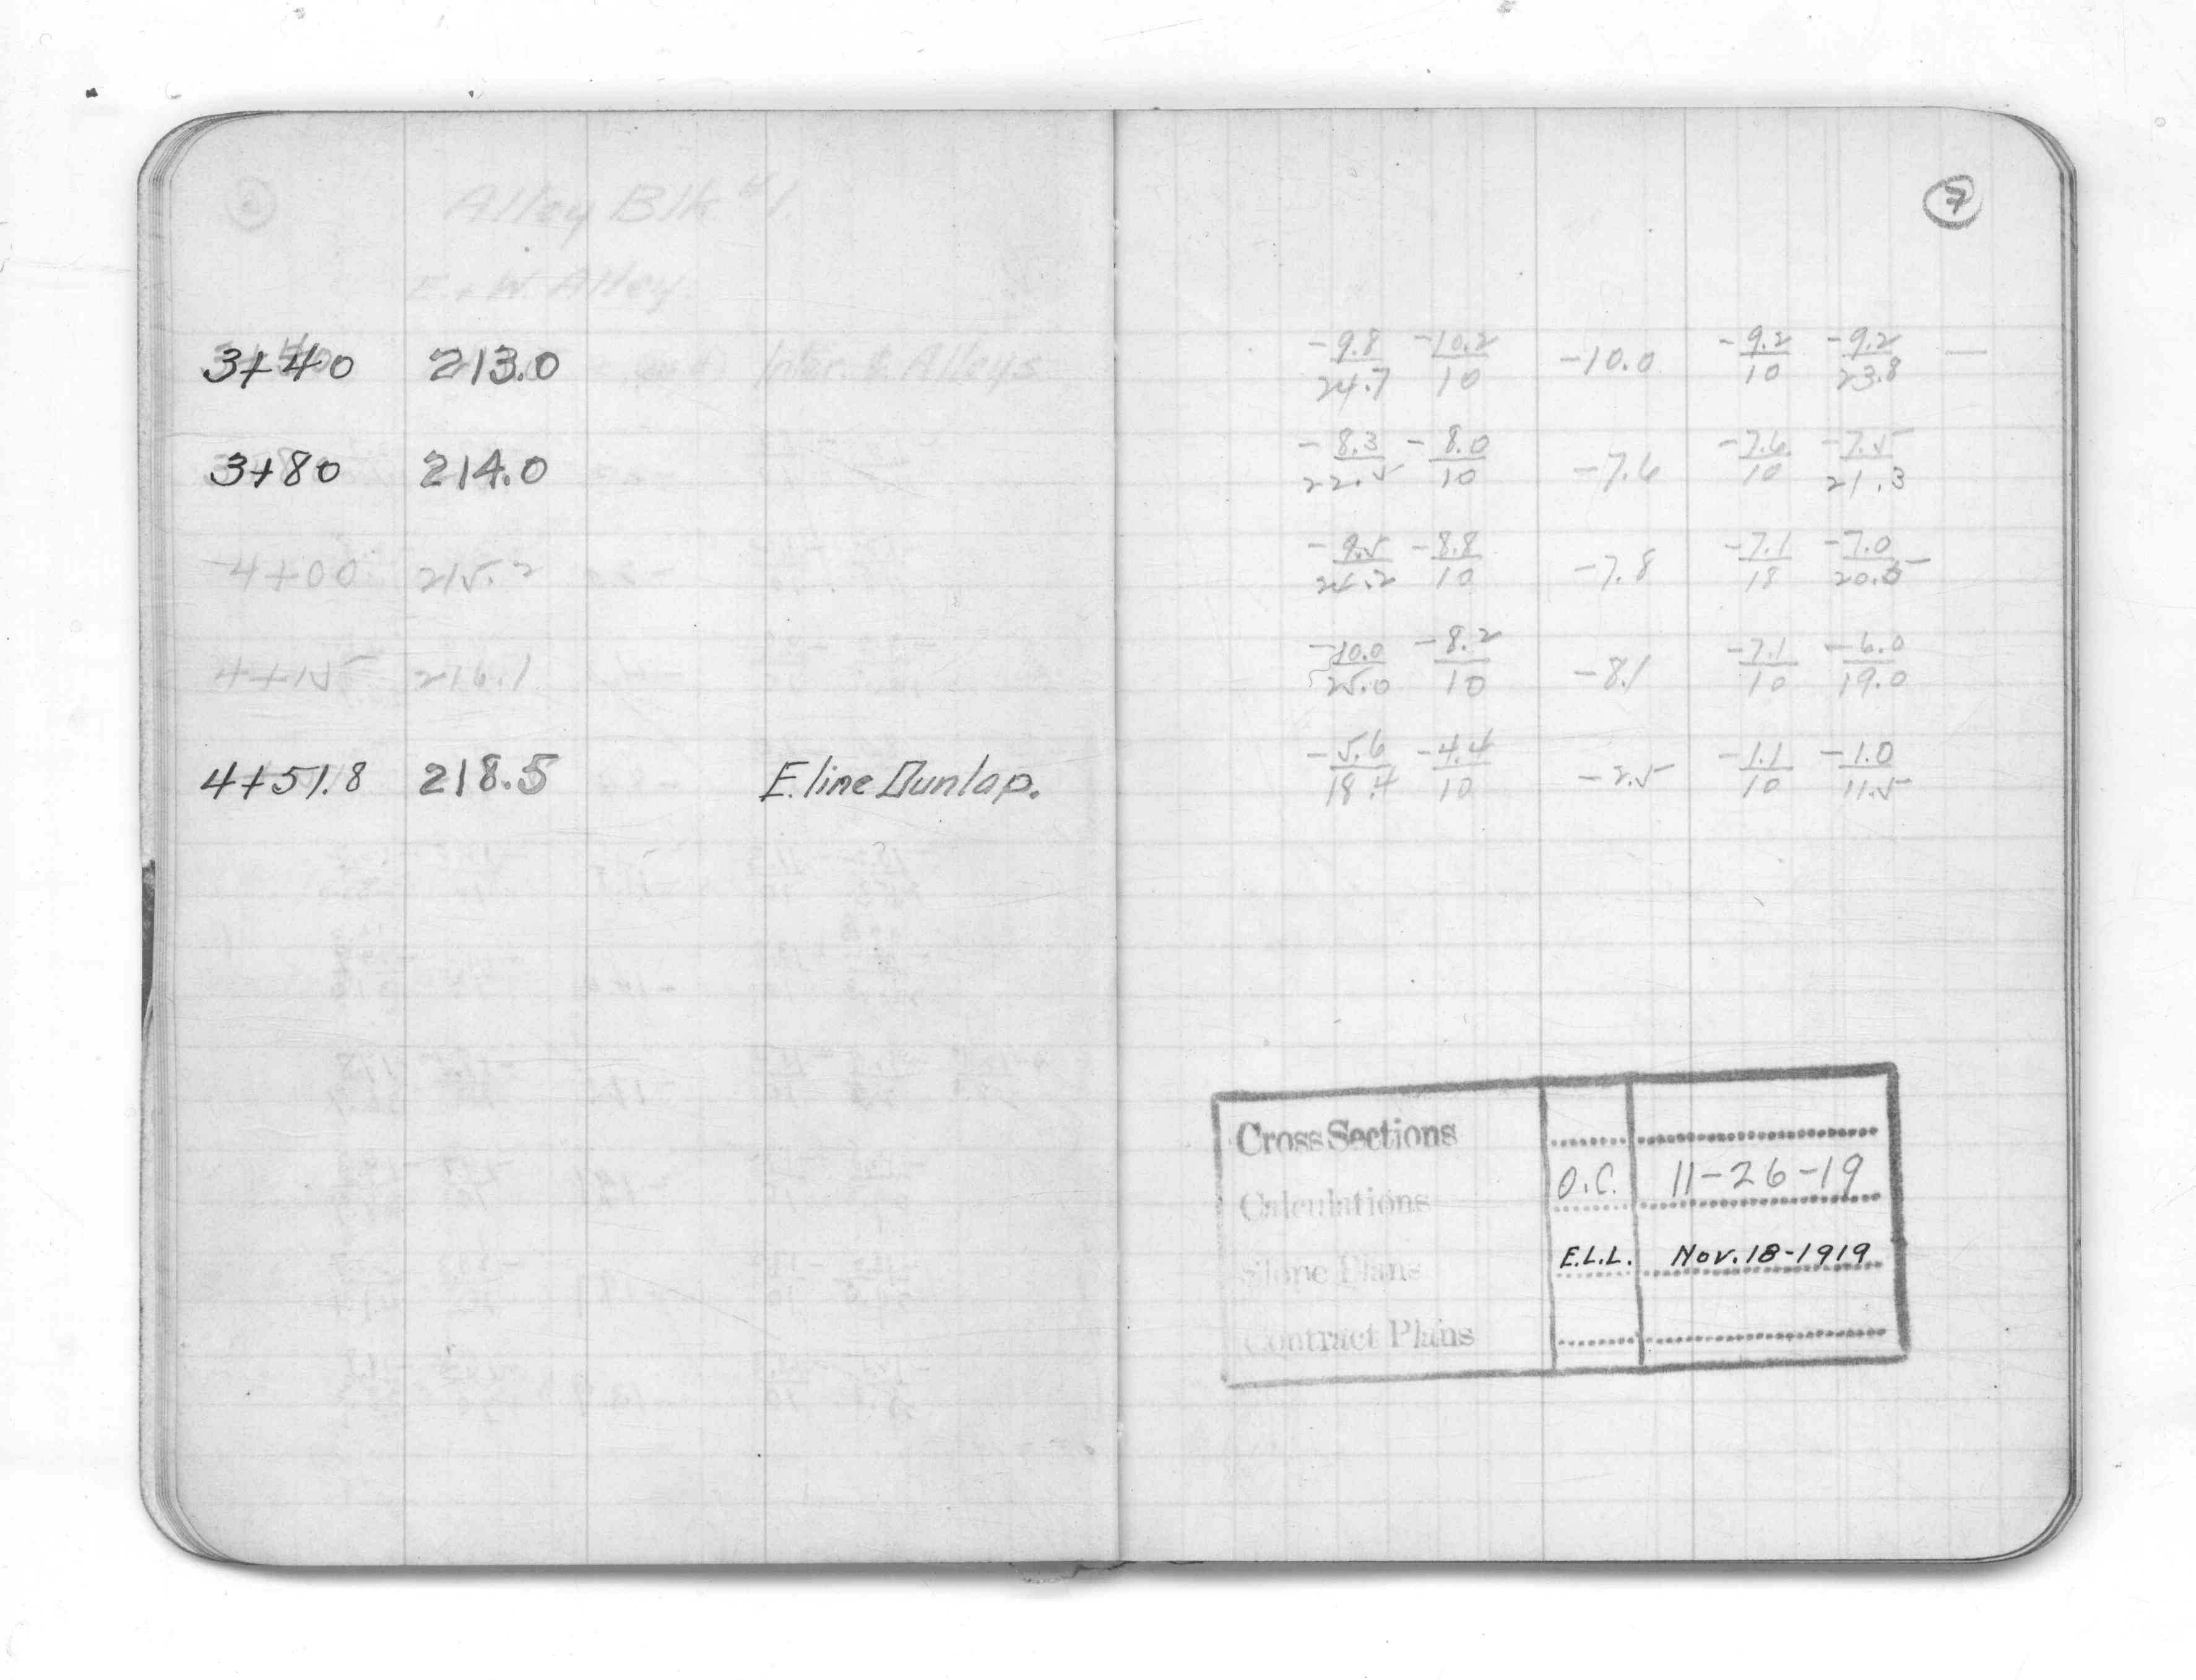 Alley Blk #1.
E. & W. Alley.
Inter. & Alleys
3+40 213.0
3+80 214.0
4+00 215.2
4+15 216.1
4+51.8 218.5 E. line Dunlap.
7
-9.8/24.7 -10.2/10 -10.0 -9.2/10 -9.2/23.8 —
-8.3/22.5 -8.0/10 -7.6 -7.6/10 -7.5/21.3
-9.5/24.2 -8.8/10 -7.8 -7.1/18 -7.0/20.5
-10.0/25.0 -8.2/10 -8.1 -7.1/10 -6.0/19.0
-5.6/18.4 -4.4/10 -2.5 -1.1/10 -1.0/11.5
Cross Sections
Calculations O.C. 11-26-19
Slope Plans E.L.L. Nov. 18-1919
Contract Plans